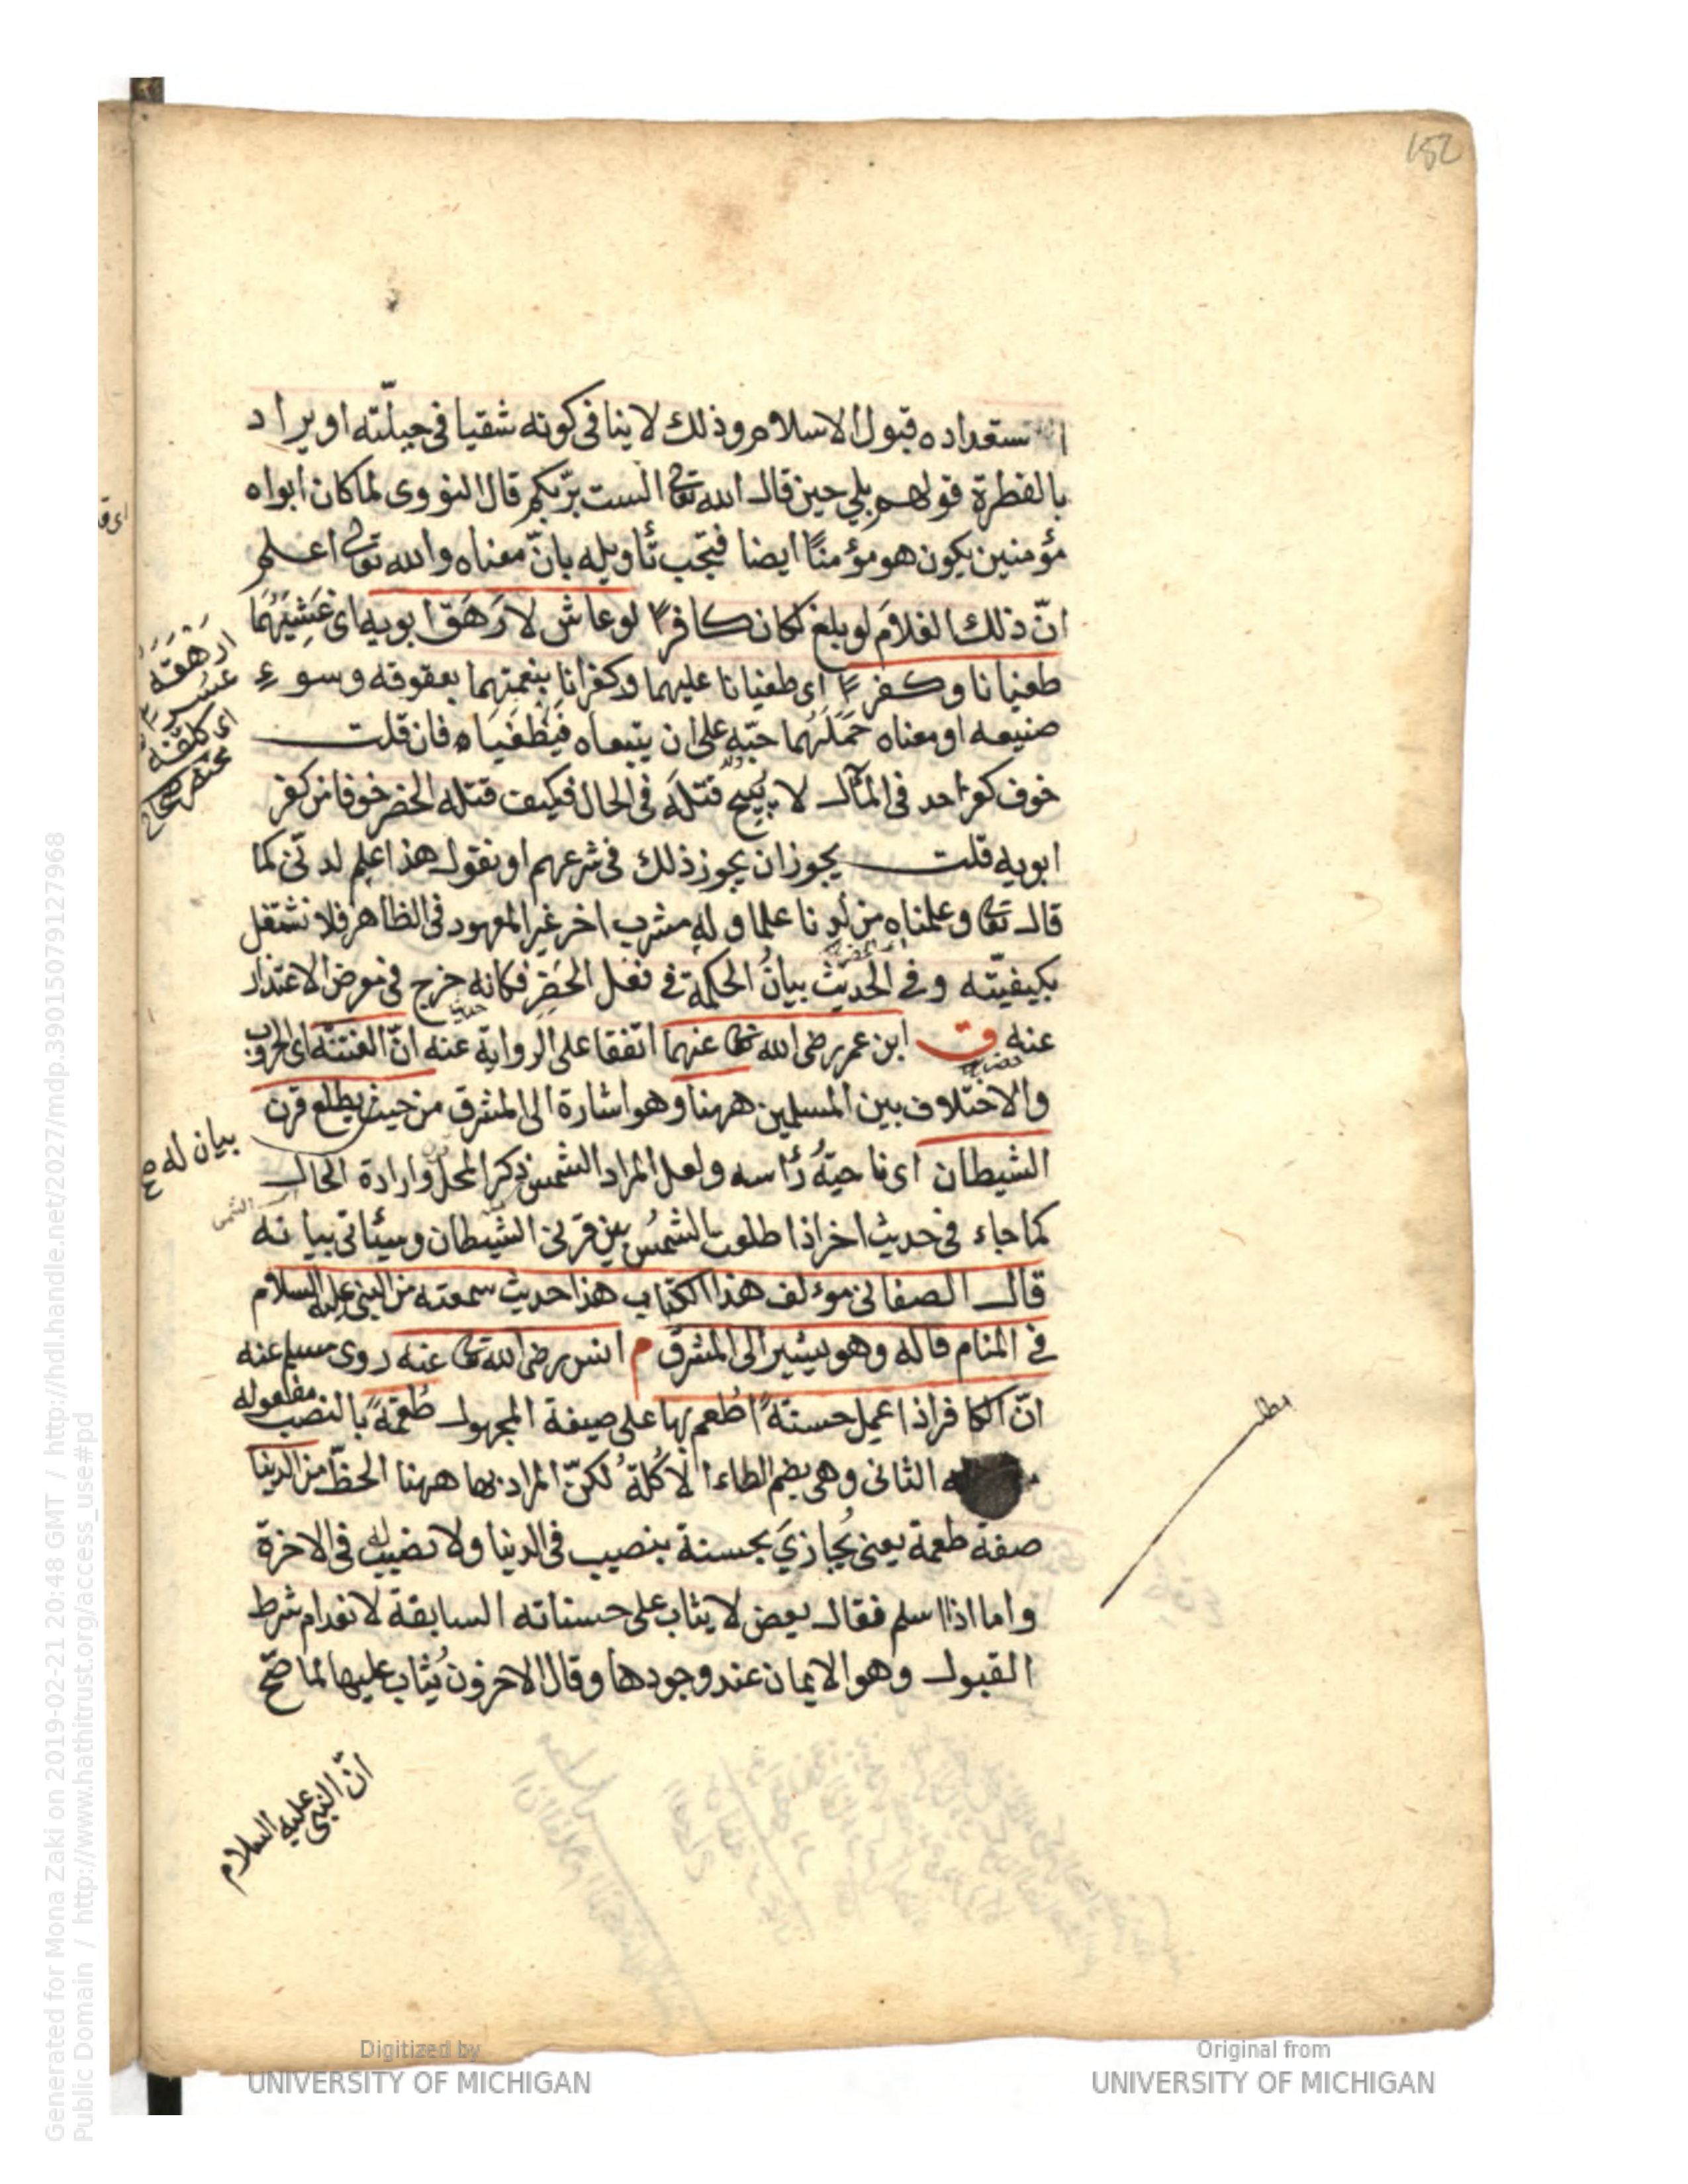 152
استعداده قبول الاسلام وذلك لا ينافى كونه شقيا فى جبلّته او يراد
بالفطرة قولهم بلى حين قال الله تعالى الست بربّكم قال النووى لما كان ابواه
مؤمنين يكون هو مؤمنًا ايضا فيجب تأويله بانّ معناه والله تعالى اعلم
انّ ذلك الغلامَ لو بلغ لكان كافرًا لو عاش لارهَقَ ابويه اى غَشِيَهُما
طغيانا وكفرًا اى طغيانا عليهما وكفرانا بنعمتهما بعقوقه وسوءِ
صنيعه او معناه حَمَلَهُما حبّه على ان يتبعاه فيطغيَاه فان قلت
خوف كفر احد فى المآل لا يبيح قتلَه فى الحال فكيف قتله الخضر خوفا من كفر
ابويه قلت يجوز ان يجوز ذلك فى شرعهم او نقول هذا علم لدنّى كما
قال تعالى وعلمناه من لدنا علما وله مشرب اخر غير المعهود فى الظاهر فلا نشتغل
بكيفيّته وفى الحديث بيانُ الحكمة فى فعل الخَضِر فكانه خرج فى معرض الاعتذار
عنه ق ابن عمر رضى الله تعالى عنهما اتفقا على الرواية عنه انّ الفتنه اى الحروب
والاختلاف بين المسلمين ههنا وهو اشارة الى المشرق من حيث يطلع قرن
الشيطان اى ناحيةُ رأسه ولعل المراد الشمس ذكر المحل وارادة الحال
كما جاء فى حديث اخر اذا طلعت الشمسُ بين قرنى الشيطان وسيأتى بيانه
قال الصغانى مؤلف هذا الكتاب هذا حديث سمعته من النبى عليه السلام
فى المنام قاله وهو يشير الى المشرق م انس رضى الله تعالى عنه روى مسلم عنه
انّ الكافر اذا عمل حسنةً اُطعم بها على صيغة المجهول طُعمةً بالنصب مفعوله
الثانى وهى بضم الطاء الاُكلةُ لكنّ المراد بها ههنا الحظّ من الدنيا
صفة طعمة يعنى يُجازىَ بحسنة بنصيب فى الدنيا ولا نصيب له فى الاخرة
واما اذا اسلم فقال بعض لا يثاب على حسناته السابقة لانعدام شرط
القبول وهو الايمان عند وجودها وقال الاخرون يُثاب عليها لما صحّ
انّ النبى عليه السلام
اَرهَقَهُ
عسرًا
اى كلفّنه
بيان له صح
الشمس
مطلب
Generated for Mona Zaki on 2019-02-21 20:48 GMT / http://hdl.handle.net/2027/mdp.39015079127968
Public Domain / http://www.hathitrust.org/access_use#pd
Digitized by
UNIVERSITY OF MICHIGAN
Original from
UNIVERSITY OF MICHIGAN